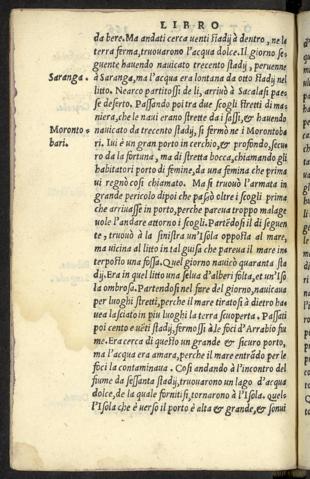 LIBRO
da bere. Ma andati cerca uenti stadij à dentro, ne la
terra ferma, truouarono l'acqua dolce. Il giorno se-
guente hauendo nauicato trecento stadij, peruenne
Saranga. à Saranga, ma l'acqua era lontana da otto stadij nel
litto. Nearco partitosi de li, arriuò à Sacalasi pae-
se deserto. Passando poi tra due scogli stretti di ma-
niera, che le naui erano strette da i sassi, & hauendo
Moronto- nauicato da trecento stadij, si fermò ne i Morontoba
bari. ri. Iui è un gran porto in cerchio, & profondo, secu-
ro da la fortuna, ma di stretta bocca, chiamando gli
habitatori porto di femine, da una femina che prima
ui regnò cosi chiamato. Ma si truouò l'armata in
grande pericolo dipoi che passò oltre i scogli prima
che arriuasse in porto, perche pareua troppo malage
uole l'andare attorno i scogli. Partẽdosi il di seguen
te, truouò à la sinistra un'Isola opposta al mare,
ma uicina al litto in tal guisa che pareua il mare in-
terposto una fossa. Quel giorno nauicò quaranta sta
dij. Era in quel litto una selua d'alberi folta, et un'Iso
la ombrosa. Partendosi nel fare del giorno, nauicaua
per luoghi stretti, perche il mare tiratosi à dietro ha-
uea lasciato in piu luoghi la terra scuoperta. Passati
poi cento e uẽti stadij, fermossi à le foci d'Arrabio fiu
me. Era cerca di questo un grande & sicuro porto,
ma l'acqua era amara, perche il mare entrãdo per le
foci la contaminaua. Cosi andando à l'incontro del
fiume da sessanta stadij, truouarono un lago d'acqua
dolce, de la quale fornitisi, tornarono à l'Isola. Quel-
l'Isola che è uerso il porto è alta & grande, & sonui